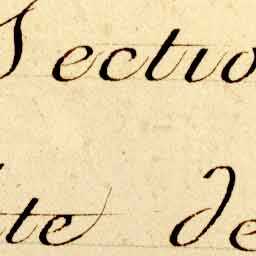 Sectio
te de